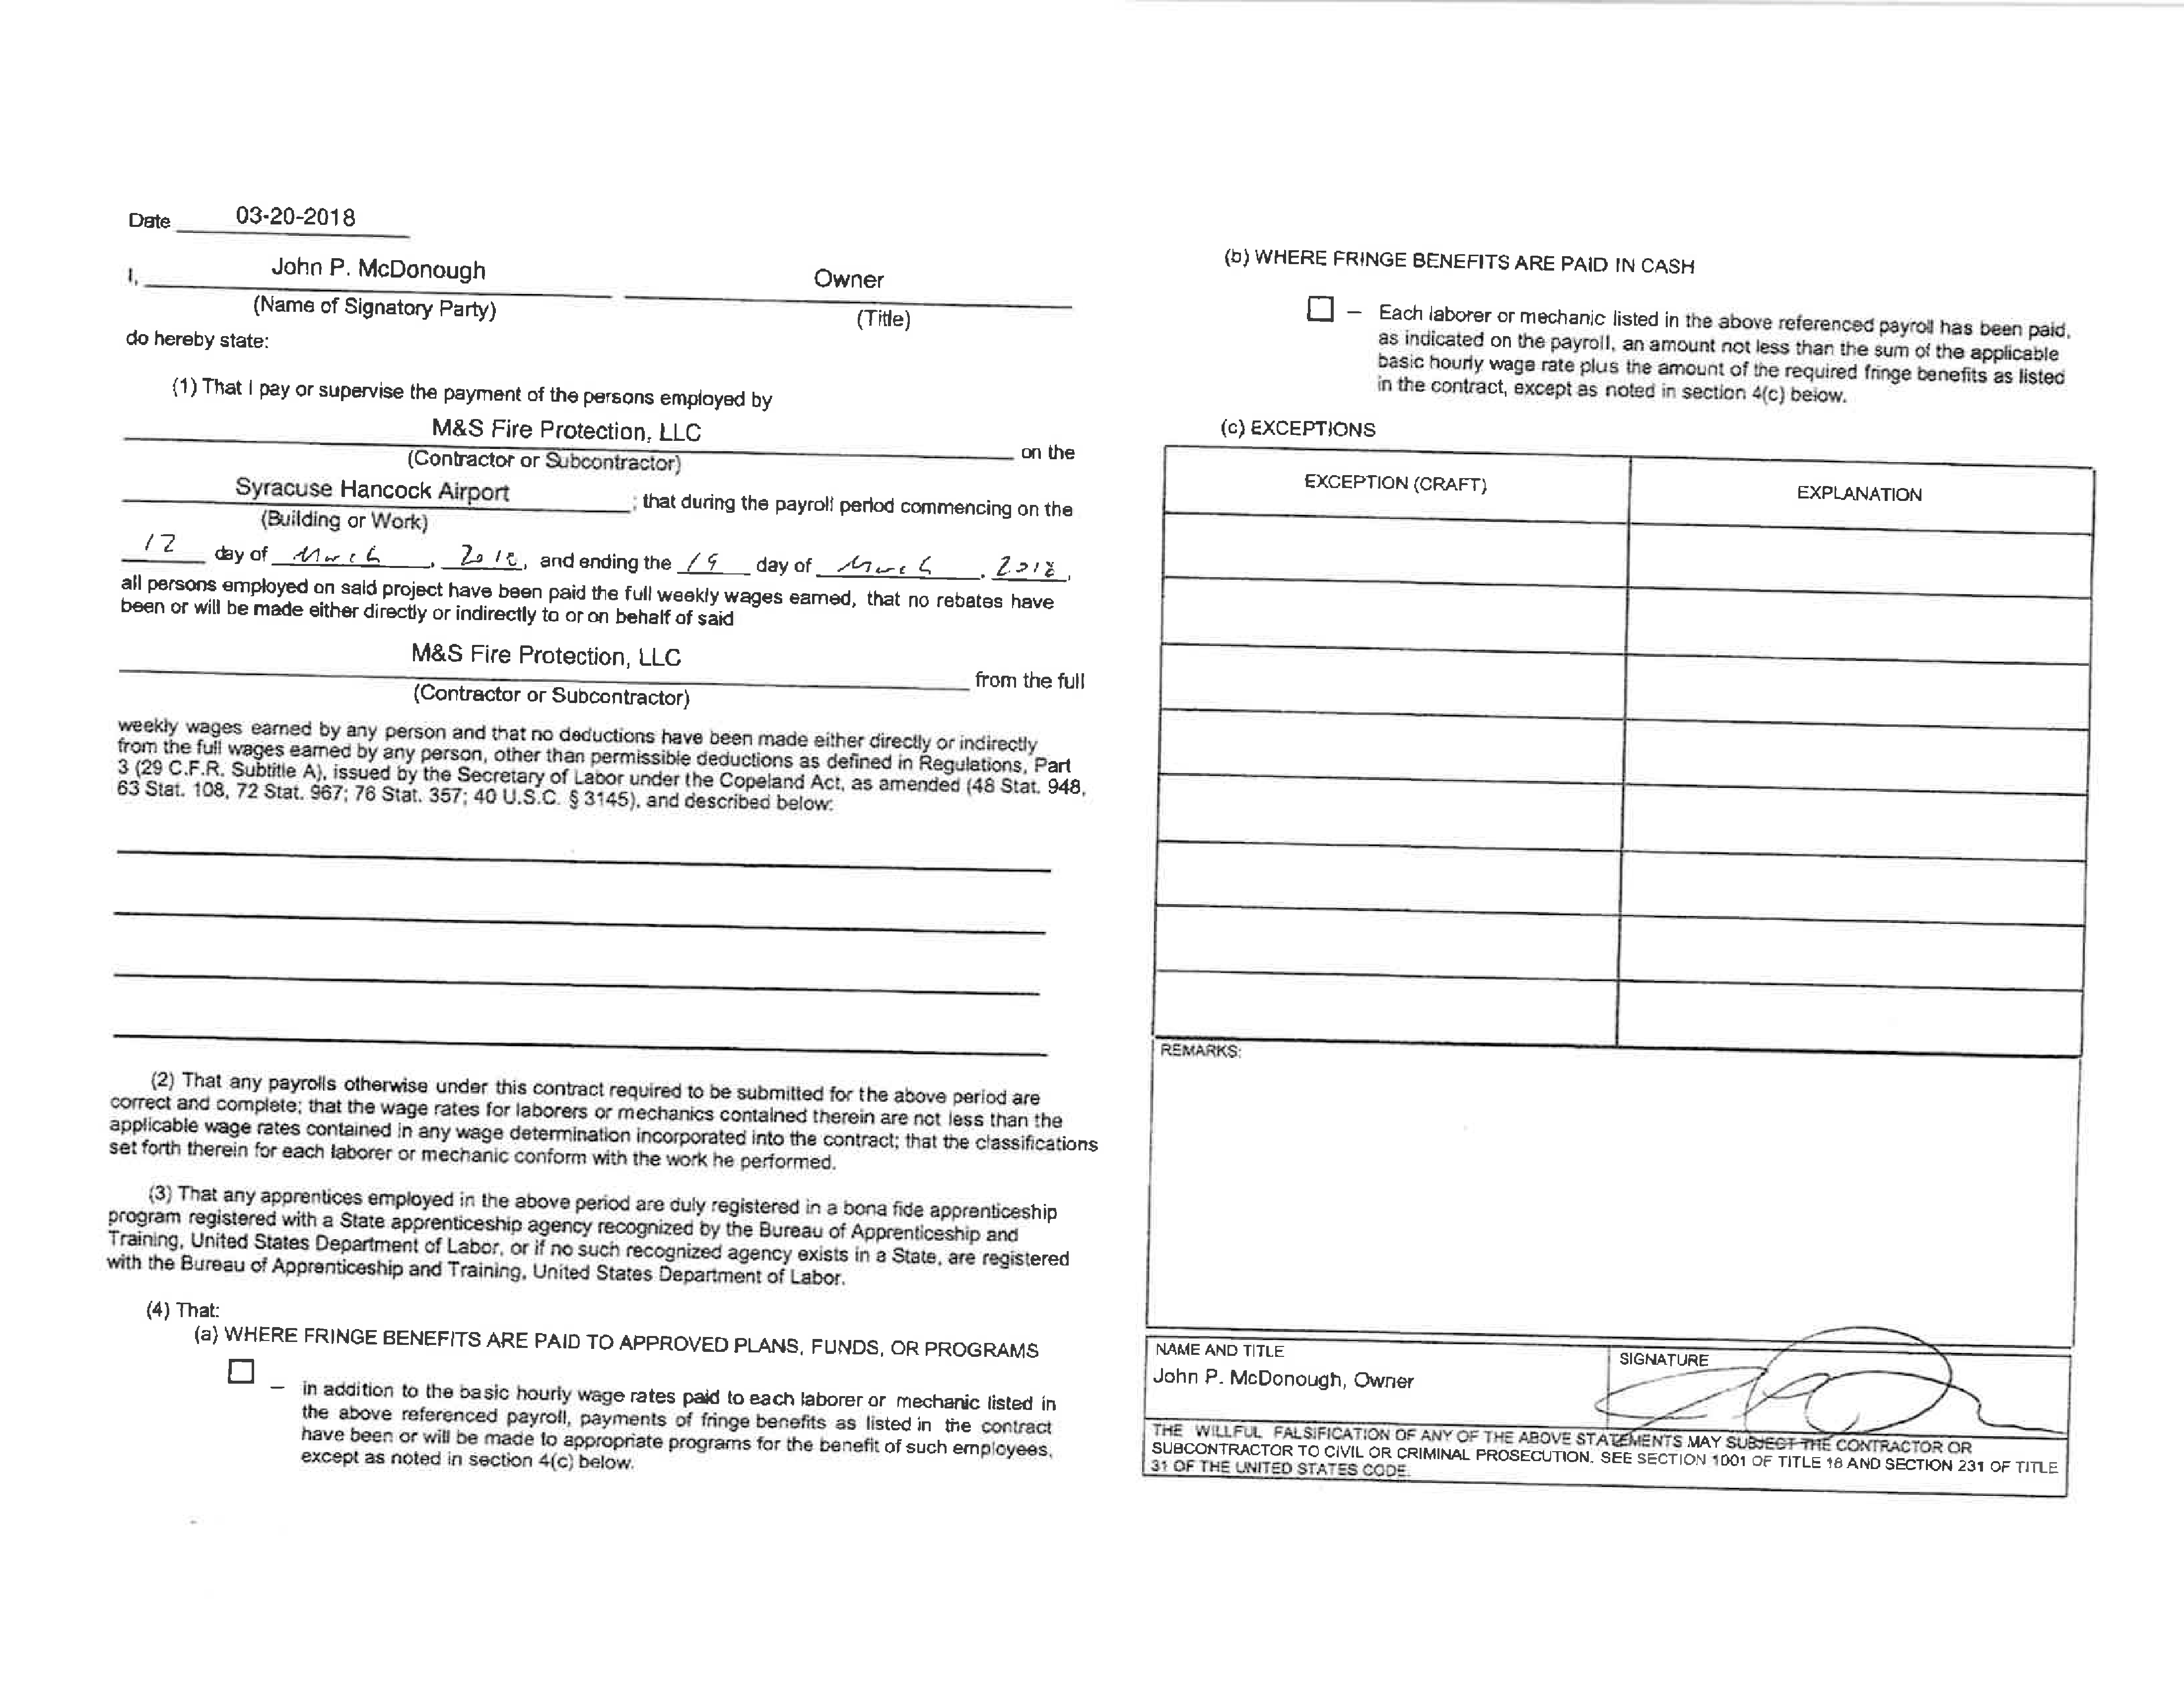 Date 03-20-2018
I, John P. McDonough Owner
(Name of Signatory Party) (Title)
do hereby state:
(1) That I pay or supervise the payment of the persons employed by
M&S Fire Protection, LLC on the
(Contractor or Subcontractor)
Syracuse Hancock Airport ; that during the payroll period commencing on the
(Building or Work)
12 day of March, 2018, and ending the 19 day of March, 2018,
all persons employed on said project have been paid the full weekly wages earned, that no rebates have
been or will be made either directly or indirectly to or on behalf of said
M&S Fire Protection, LLC from the full
(Contractor or Subcontractor)
weekly wages earned by any person and that no deductions have been made either directly or indirectly
from the full wages earned by any person, other than permissible deductions as defined in Regulations, Part
3 (29 C.F.R. Subtitle A), issued by the Secretary of Labor under the Copeland Act, as amended (48 Stat. 948,
63 Stat. 108, 72 Stat. 967; 76 Stat. 357; 40 U.S.C. § 3145), and described below:
(2) That any payrolls otherwise under this contract required to be submitted for the above period are
correct and complete; that the wage rates for laborers or mechanics contained therein are not less than the
applicable wage rates contained in any wage determination incorporated into the contract; that the classifications
set forth therein for each laborer or mechanic conform with the work he performed.
(3) That any apprentices employed in the above period are duly registered in a bona fide apprenticeship
program registered with a State apprenticeship agency recognized by the Bureau of Apprenticeship and
Training, United States Department of Labor, or if no such recognized agency exists in a State, are registered
with the Bureau of Apprenticeship and Training, United States Department of Labor.
(4) That:
(a) WHERE FRINGE BENEFITS ARE PAID TO APPROVED PLANS, FUNDS, OR PROGRAMS
– in addition to the basic hourly wage rates paid to each laborer or mechanic listed in
the above referenced payroll, payments of fringe benefits as listed in the contract
have been or will be made to appropriate programs for the benefit of such employees,
except as noted in section 4(c) below.
(b) WHERE FRINGE BENEFITS ARE PAID IN CASH
– Each laborer or mechanic listed in the above referenced payroll has been paid,
as indicated on the payroll, an amount not less than the sum of the applicable
basic hourly wage rate plus the amount of the required fringe benefits as listed
in the contract, except as noted in section 4(c) below.
(c) EXCEPTIONS
EXCEPTION (CRAFT) EXPLANATION
REMARKS:
NAME AND TITLE SIGNATURE
John P. McDonough, Owner
THE WILLFUL FALSIFICATION OF ANY OF THE ABOVE STATEMENTS MAY SUBJECT THE CONTRACTOR OR
SUBCONTRACTOR TO CIVIL OR CRIMINAL PROSECUTION. SEE SECTION 1001 OF TITLE 18 AND SECTION 231 OF TITLE
31 OF THE UNITED STATES CODE.